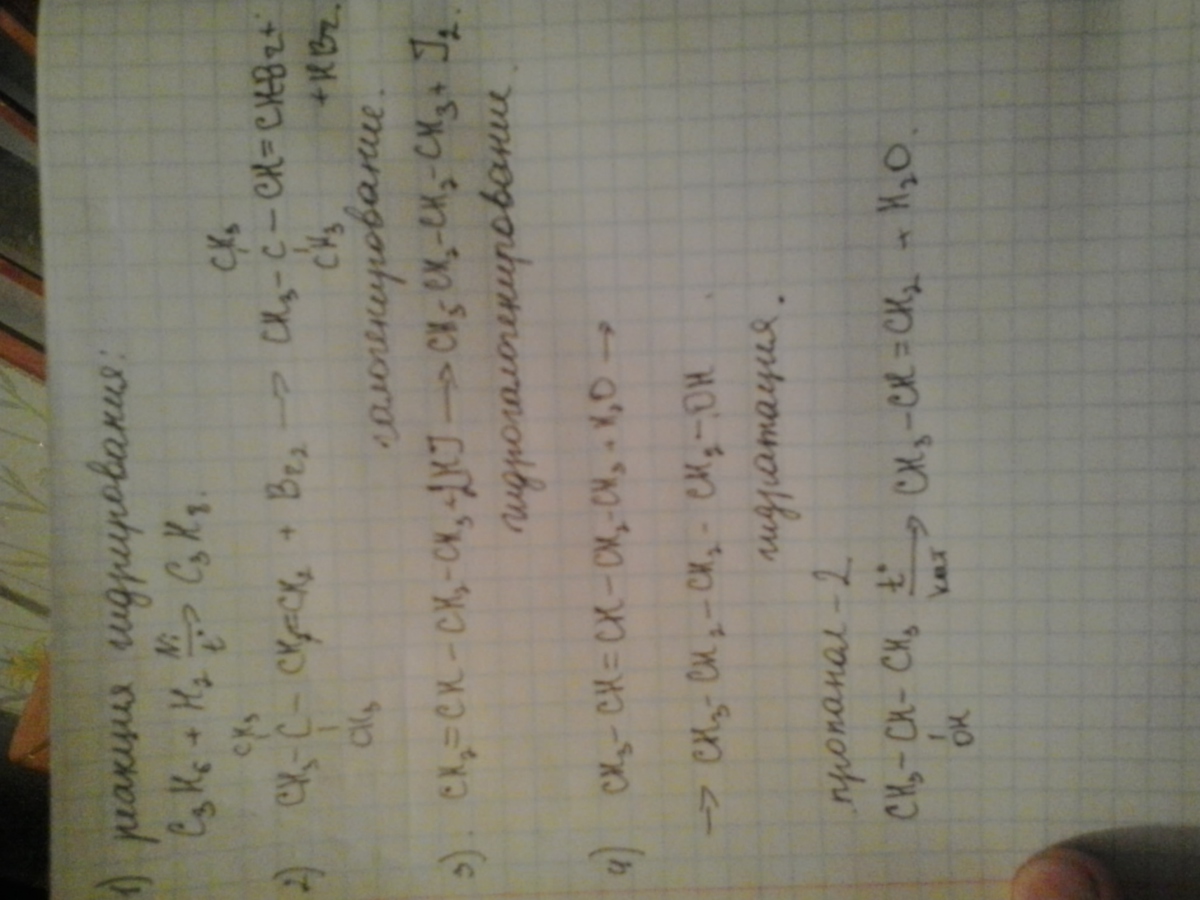 1) реакция гидрирования:
C₃H₆ + H₂ Ni/t° → C₃H₈.
CH₃ CH₃
2) CH₃ - C - CH=CH₂ + Br₂ → CH₃ - C - CH = CHBr +
CH₃ CH₃ + HBr.
галогенирование.
3). CH₂ = CH - CH₂ - CH₃ + 2HJ → CH₃ - CH₂ - CH₂ - CH₃ + J₂.
гидрогалогенирование.
4) CH₃ - CH = CH - CH₂ - CH₃ + H₂O →
→ CH₃ - CH₂ - CH₂ - CH₂ - OH
гидратация.
пропанал - 2
CH₃ - CH - CH₃ t°/кат → CH₃ - CH = CH₂ + H₂O.
OH